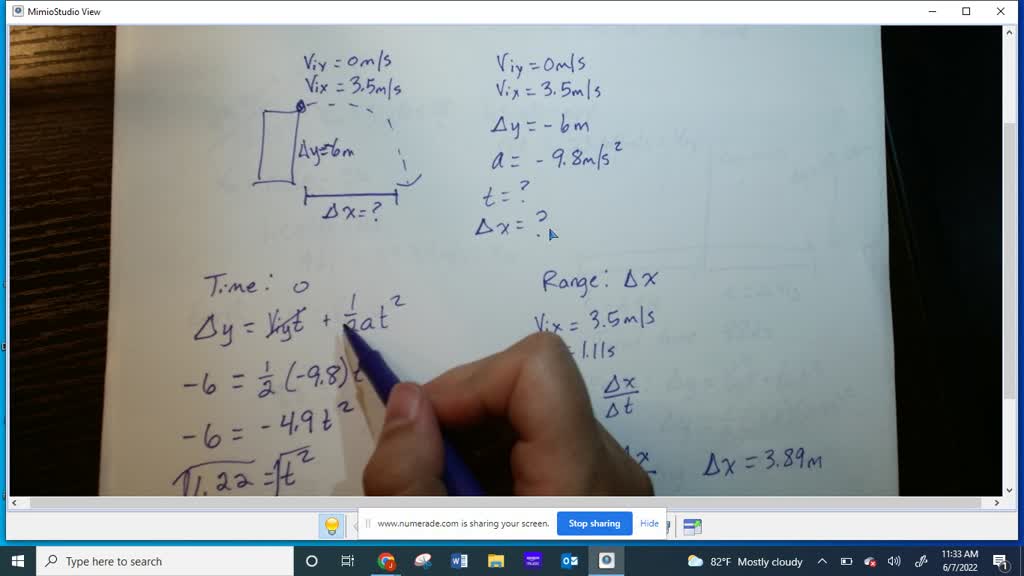 MimioStudio View
Viy = 0m/s
Vix = 3.5m/s
Δy=-6m
Δx=?
Viy = 0m/s
Vix = 3.5m/s
Δy = -6m
a = -9.8m/s²
t = ?
Δx = ?
Time: 0
Δy = Viyt + 1/2at²
-6 = 1/2 (-9.8)t
-6 = -4.9t²
√1.22 = √t²
Range: Δx
Vix = 3.5m/s
= 1.11s
Δx/Δt
Δx
Δx = 3.89m
www.numerade.com is sharing your screen.
Stop sharing
Hide
Type here to search
82°F Mostly cloudy
11:33 AM
6/7/2022